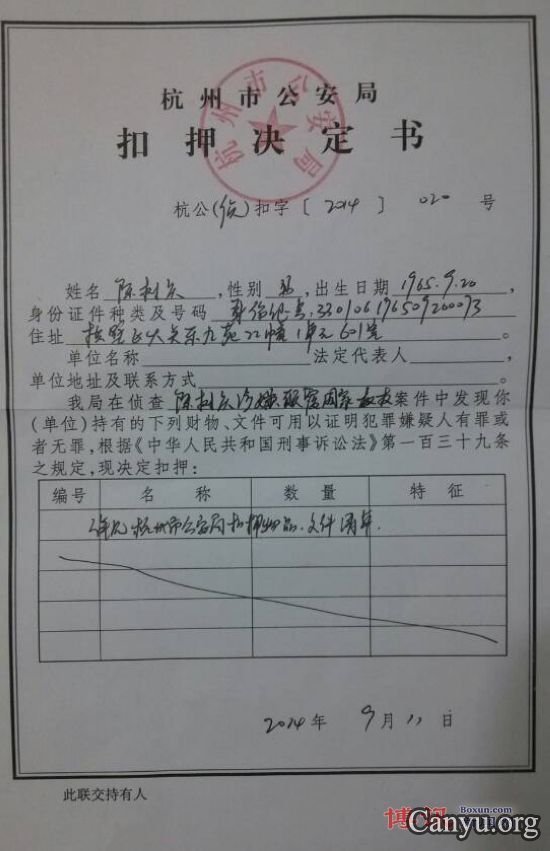 杭州市公安局
杭州市公安局
扣押决定书
杭公(侦)扣字〔2014〕020号
姓名 陈树庆，性别 男，出生日期 1965.9.20，
身份证件种类及号码 330106196509200073
住址 拱墅区大关东九苑22幢1单元601室。
单位名称 法定代表人，
单位地址及联系方式。
我局在侦查 陈树庆涉嫌颠覆国家政权案件中发现你
(单位)持有的下列财物、文件可用以证明犯罪嫌疑人有罪或
者无罪，根据《中华人民共和国刑事诉讼法》第一百三十九条
之规定，现决定扣押：
编号 名称 数量 特征
详见杭州市公安局扣押物品、文件清单.
2014年9月11日
此联交持有人
博讯 Boxun.com
Canyu.org